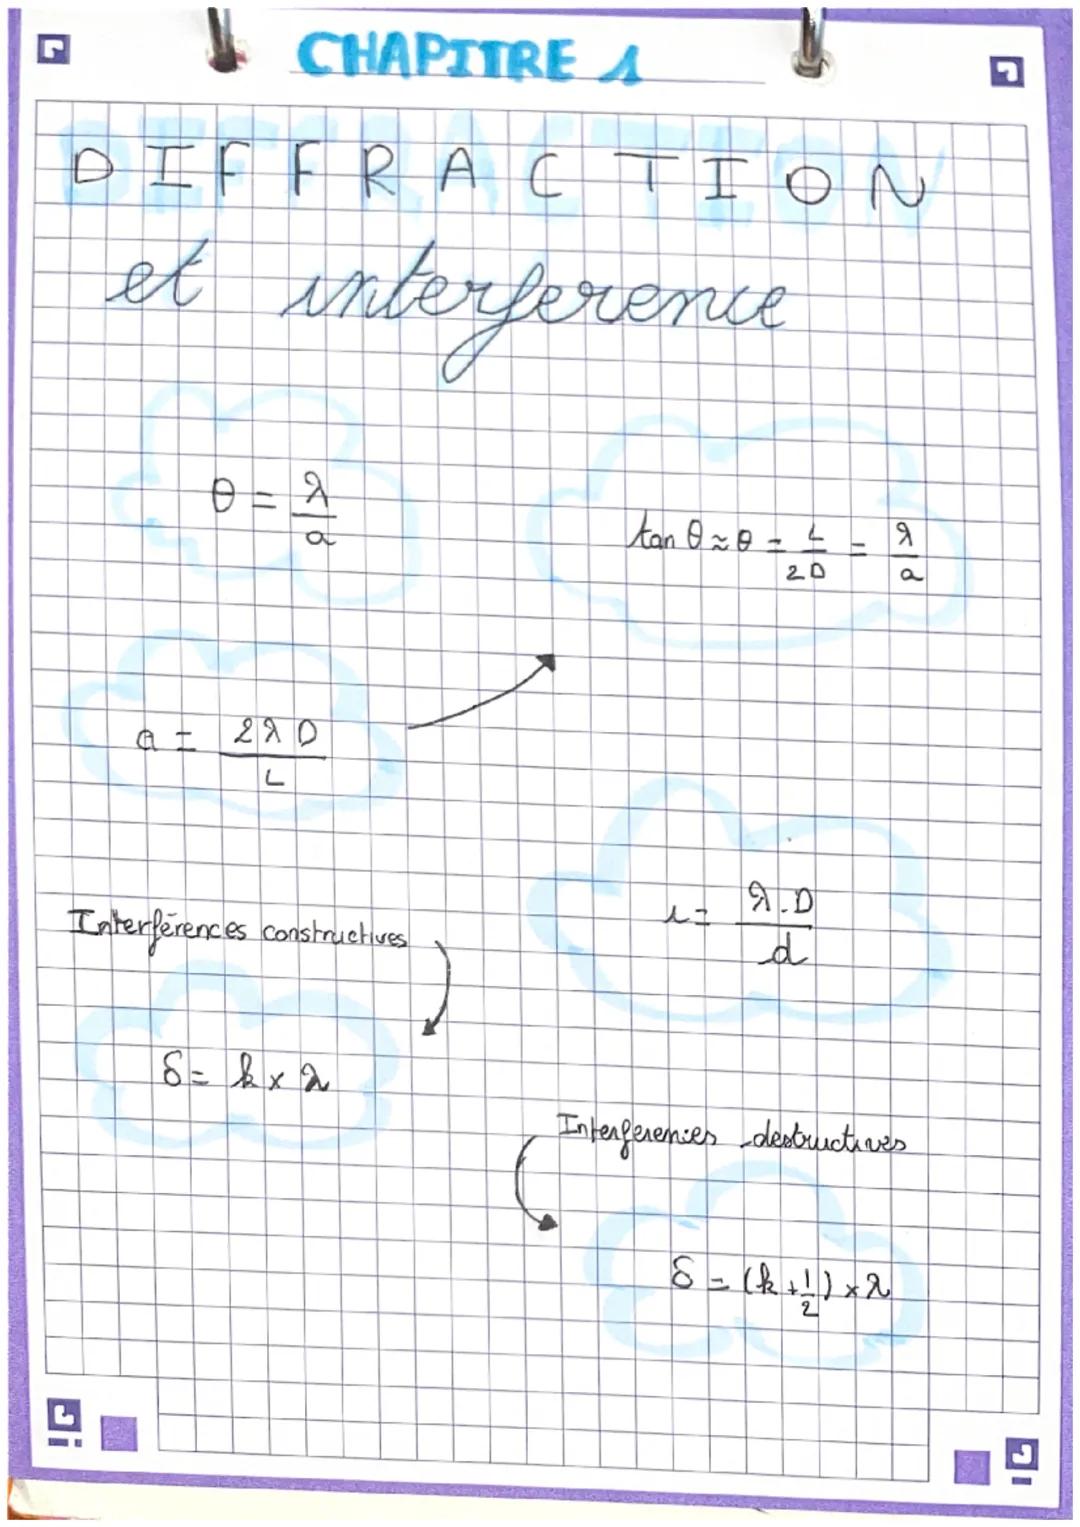 CHAPITRE 1
DIFFRACTION
et interference
θ = λ/a
tan θ ≈ θ = L/2D = λ/a
a = 2λD/L
i = λ.D/d
Interférences constructives
δ = k × λ
Interferences destructives
δ = (k + 1/2) × λ